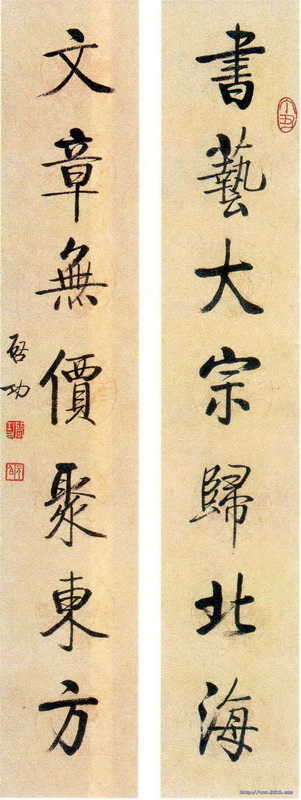 書藝大宗歸北海
文章無價聚東方
啓功